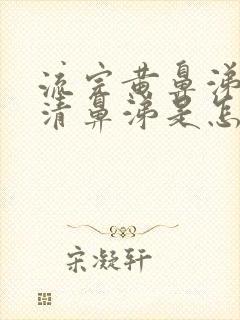 流完黄鼻涕
清鼻涕是怎
宋凝轩